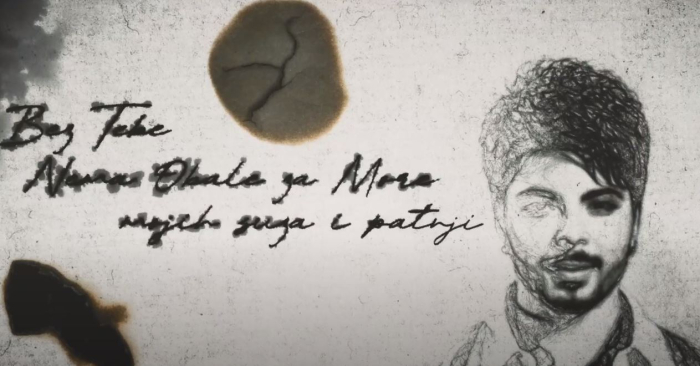 Bez Tebe
Nemas Obale za More
mojih suza i patnji